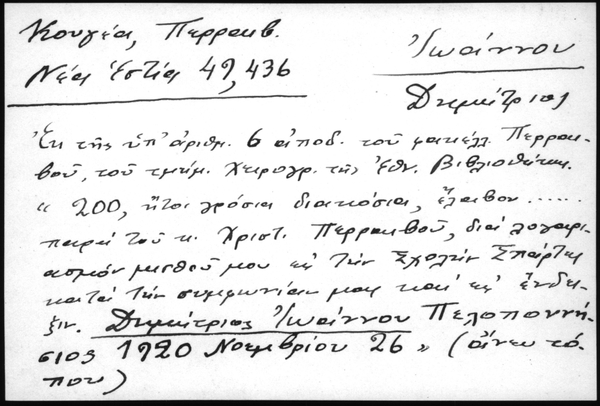 Κουγέα, Περραιβ.
Νέα Ἑστία 49, 436
Ἰωάννου
Δημήτριος
Ἐκ τῆς ὑπ' ἀριθμ. 6 ἀποδ. τοῦ φακέλλ. Περραι-
βοῦ, τοῦ τμήμ. Χειρογρ. τῆς Ἐθν. Βιβλιοθήκης.
« 200, ἤτοι γρόσια διακόσια, ἔλαβον ......
παρά τοῦ κ. Χριστ. Περραιβοῦ, διά λογαρι-
ασμόν μισθοῦ μου εἰς τήν Σχολήν Σπάρτης
κατά τήν συμφωνίαν μας καί εἰς ἔνδει-
ξιν. Δημήτριος Ἰωάννου Πελοποννή-
σιος 1920 Νοεμβρίου 26 » (ἄνευ τό-
που)